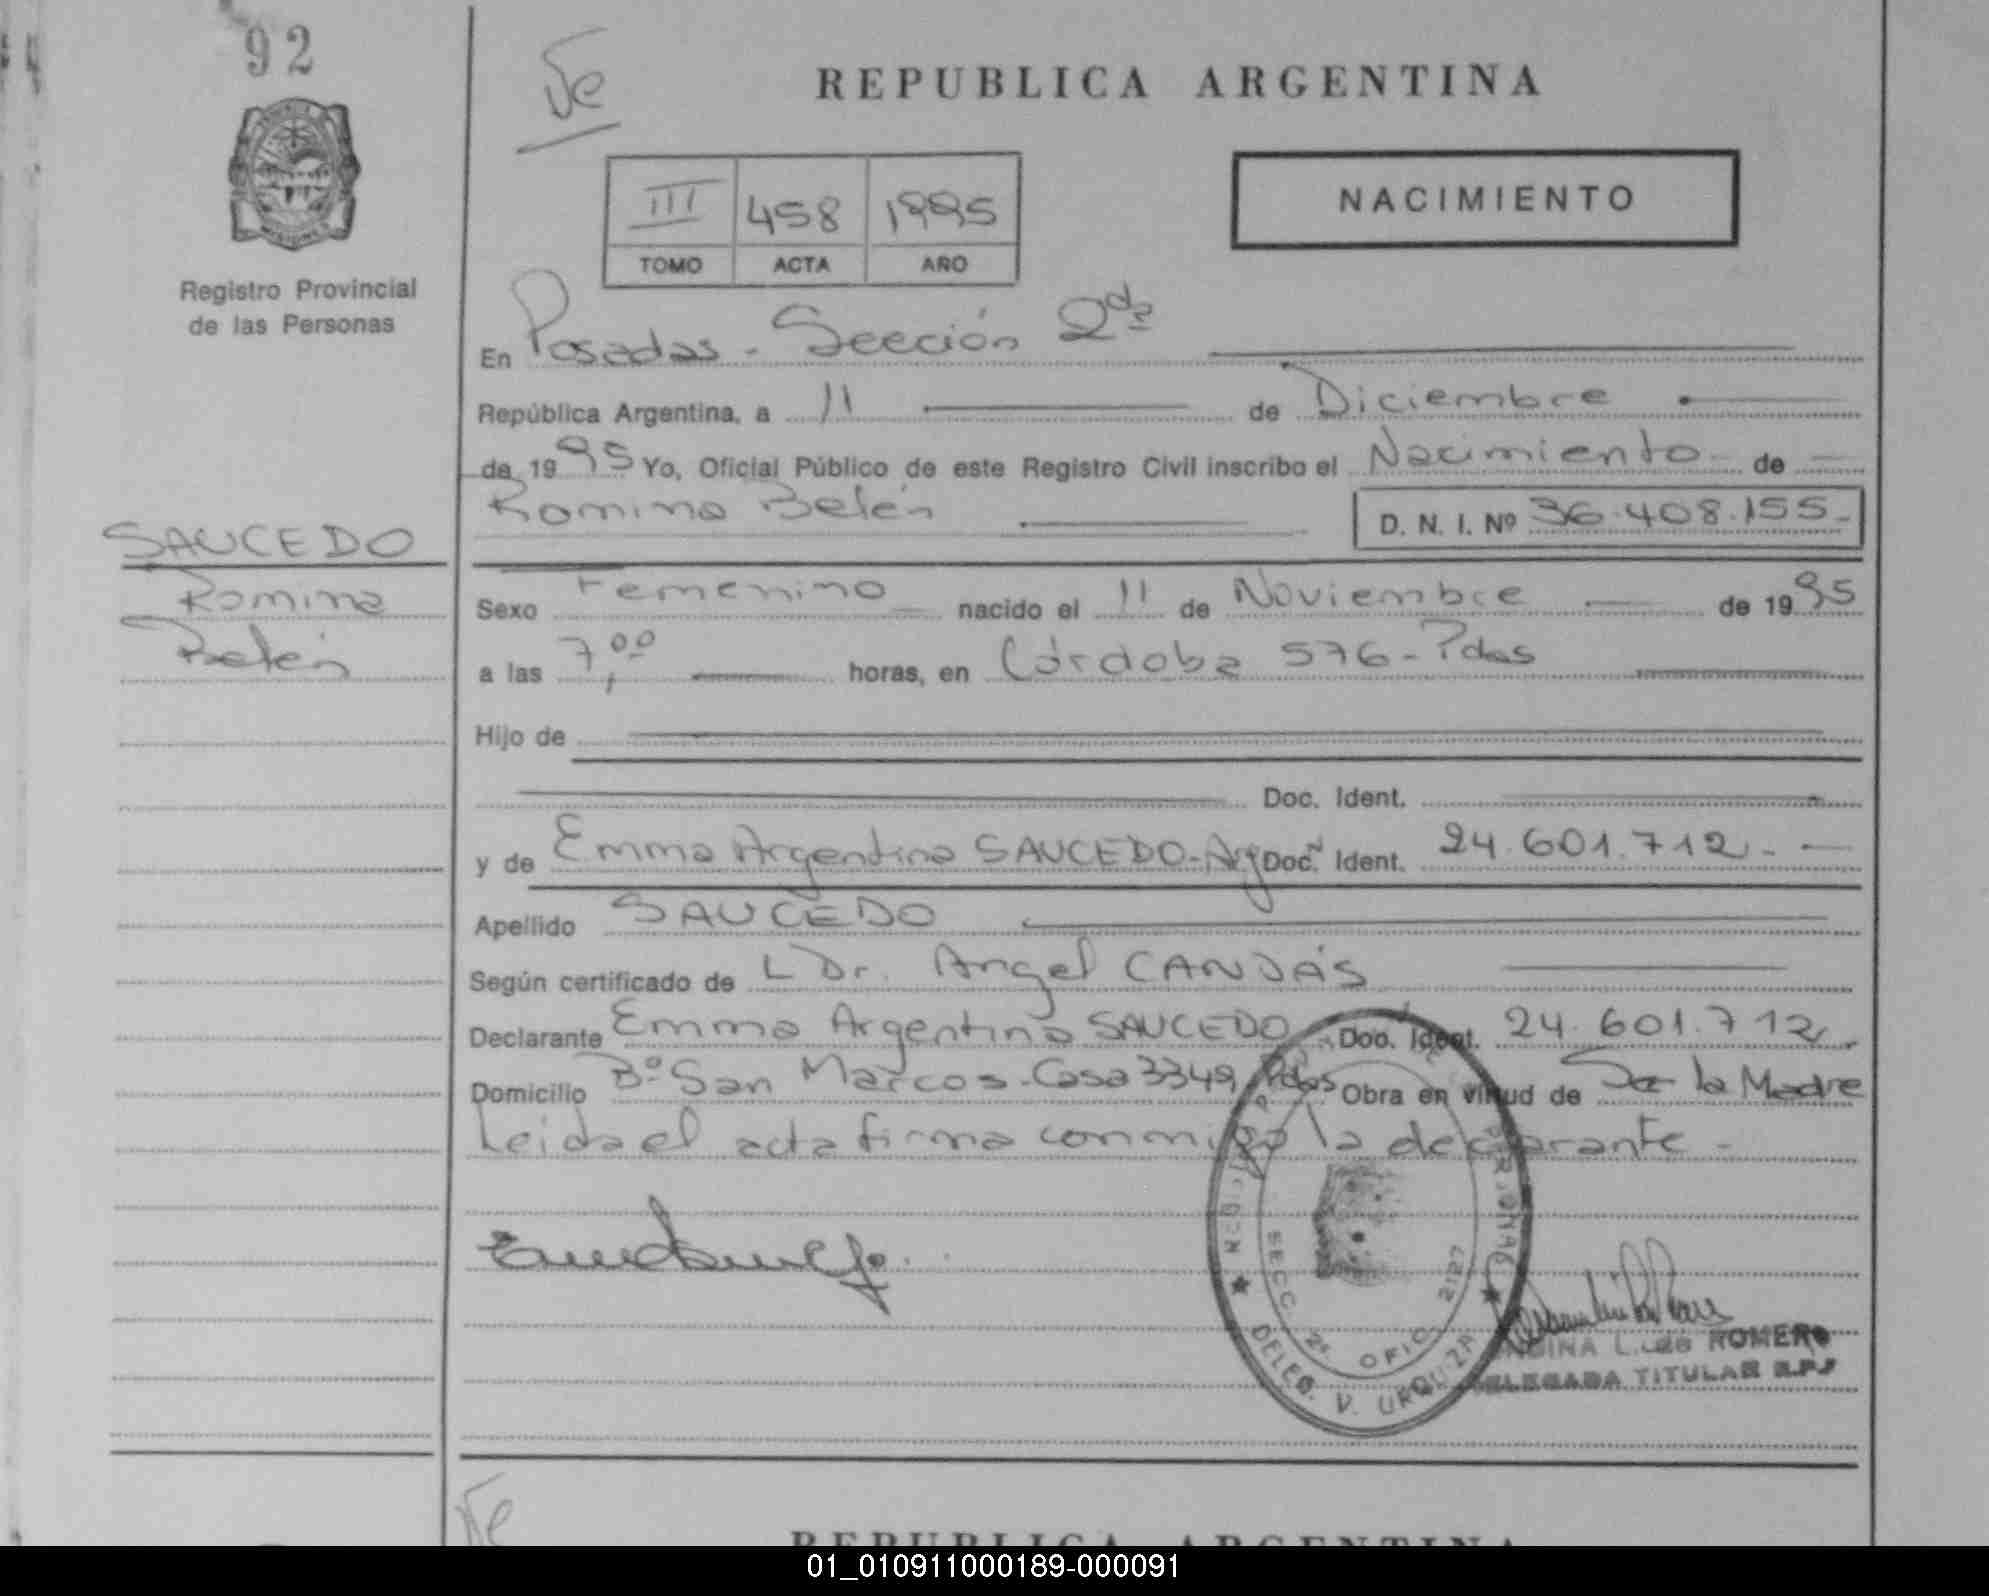 92
REPUBLICA ARGENTINA
NACIMIENTO
III 458 1995
TOMO ACTA AÑO
Registro Provincial
de las Personas
En Posadas - Sección 2da
República Argentina, a 11 de Diciembre
de 1995 Yo, Oficial Público de este Registro Civil inscribo el Nacimiento de
Romina Belén D. N. I. Nº 36.408.155-
SAUCEDO
Romina
Belén
Sexo Femenino nacido el 11 de Noviembre de 1995
a las 7,00 horas, en Córdoba 576 - Pdas
Hijo de
Doc. Ident.
y de Emma Argentina SAUCEDO - Arg Doc. Ident. 24.601.712.-
Apellido SAUCEDO
Según certificado de L Dr. Angel CANDÁS
Declarante Emma Argentina SAUCEDO Doc. Ident. 24.601.712
Domicilio Bº San Marcos - Casa 3349 Pdas Obra en virtud de Ser la Madre
Leida el acta firma conmigo la declarante -
SECC. 2º OFIC. 2127
DELEG. V. URQUIZA
ROMERO
DELEGADA TITULAR R.P.
REPUBLICA ARGENTINA
01_010911000189-000091